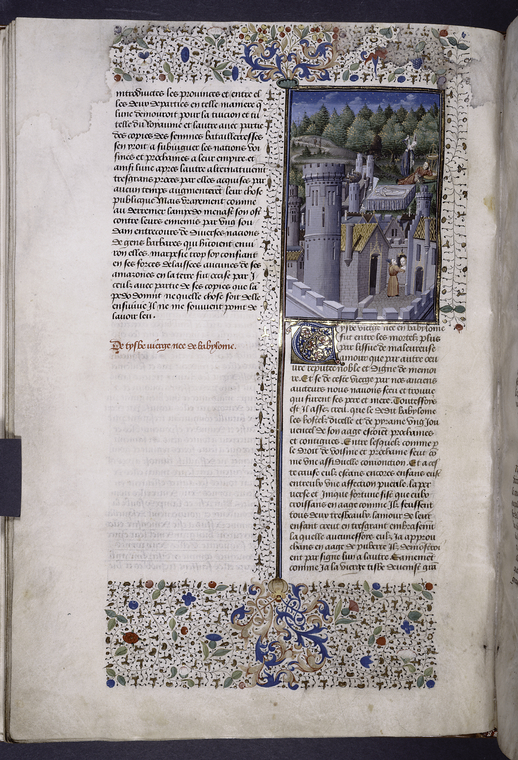 introduites les provinces et entre el
les deux departies en telle maniere q̃
lune demouroit pour la tuicion et tu
telle du royaume et lautre avec partie
des copies des femmes batailleresses
sen yroit a subiuguer les nations voi
sines et prochaines a leur empire et
ainsi lune apres lautre alternativement
tresgrans proies par elles acquises par
aucun temps augmenterent leur chose
publique Mais vrayement comme
au derrenier lampedo menast son ost
contre leurs ennemis par ung sou
dain entrecours de diverses nations
de gens barbares qui estoient envi
ron elles marpesie trop soy confiant
en ses forces delaissees aucunes de ses
amazones en la terre fut occise par i
ceulx avec partie de ses copies que la
pedo donint ne quelle chose soit delle
ensuivie Il ne me souvient point de
lavoir leu.
De tysbe vierge nee de babylonne.
Tysbe vierge nee en babylonne
fut entre les mortelz plus
par lissue de maleureuse
amour que par autre oeu
vre reputee noble et digne de memoi
re. Et se de ceste vierge par nos anciens
aucteurs nous navons sceu et trouve
qui furent ses pere et mere. Touteffois
est il assez creu que le dedit babylonne
les hostelz dicelle et de pirame ung Jou
vencel de son aage estoient prochains
et contigues. Entre lesquelz comme p̃
le droit de voisine et prochaine feust cõ
me une assiduelle conionction. Et a ceste
cause eulx estans encores enfans eust
entreulx une affection puerile. la per
verse et inique fortune fist que eulx
croissans en aage comme ilz feussent
tous deux tresbeaulx lamour de leur
enfance creut en tresgrant embrasement
laquelle aucuneffois eulx Ja approu
chans en aage de puberte ilz demonstroi
ent par signe lun a lautre. Certainement
comme Ja la vierge tisbe devenist grãt